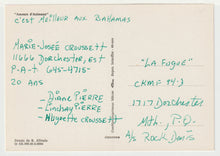 "Amours d'Automne"
C'EST MEILLEUR AUX BAHAMAS
MARIE-JOSÉE CROUSETT
11666 DORCHESTER, EST
P-A-T 645-4715
20 ANS
- DIANE PIERRE
- LINDSAY PIERRE
- HUGUETTE CROUSETT
"LA FUGUE"
CKMF 94.3
1717 DORCHESTER
MTL. P.Q.
A/S ROCK DENIS